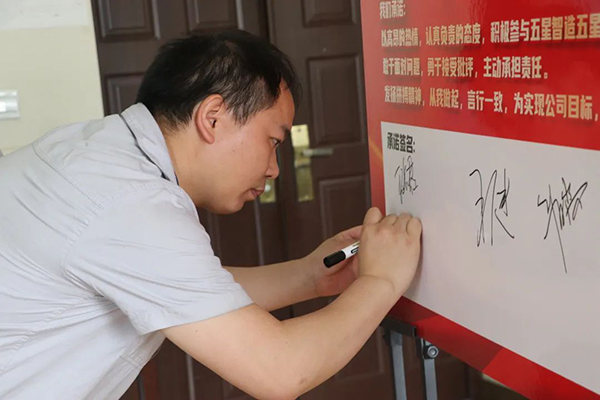 我们承诺:
饱满的热情,认真负责的态度,积极参与五星智造五星
敢于面对问题,勇于接受批评,主动承担责任。
发扬拼搏精神,从我做起,言行一致,为实现公司目标,
承诺签名: